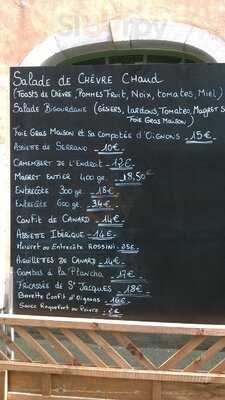 Salade de Chèvre Chaud
(Toasts de Chèvre, Pommes Fruit, Noix, tomates, Miel)
Salade Bigourdane (Gésiers, lardons, Tomates, Magret S
Foie Gras Maison)
Foie Gras Maison et sa compotée d'Oignons 15€
Assiette de Serrano 10€
Camembert de l'Endroit 12€
Magret Entier 400 gr 18,50€
Entrecôte 300 gr 18€
Entrecôte 600 gr 34€
Confit de Canard 14€
Assiette Ibérique 14€
Magret ou Entrecôte Rossini 25€
Aiguillettes de Canard 14€
Gambas à la Plancha 17€
Fricassée de St Jacques 18€
Bavette Confit d'Oignons 16€
Sauce Roquefort ou Poivre €